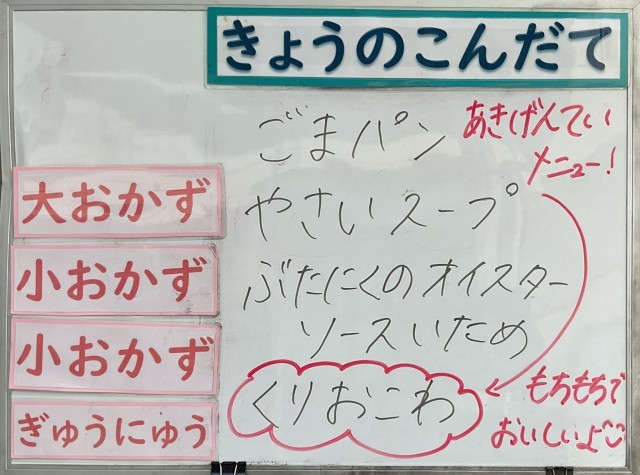 きょうのこんだて
ごまパン
あきげんてい
メニュー!
大おかず
やさいスープ
小おかず
ぶたにくのオイスター
ソースいため
小おかず
くりおこわ
もちもちで
おいしいよ
ぎゅうにゅう